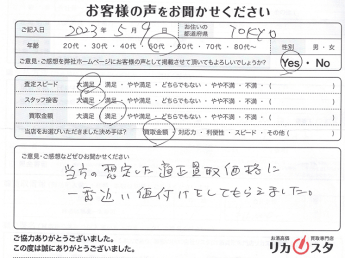 お客様の声をお聞かせください
ご記入日 2023年 5月 9日 お住いの都道府県 TOKYO
年齢 20代・30代・40代・50代・60代・70代・80代〜 性別 男・女
ご意見・ご感想を弊社ホームページにお客様の声として掲載させて頂いてもよろしいでしょうか? Yes・No
査定スピード 大満足・満足・やや満足・どちらでもない・やや不満・不満・( )
スタッフ接客 大満足・満足・やや満足・どちらでもない・やや不満・不満・( )
買取金額 大満足・満足・やや満足・どちらでもない・やや不満・不満・( )
当店をお選びいただきました決め手は? 買取金額・対応力・利便性・スピード・その他( )
ご意見・ご感想などぜひお聞かせください
当方の想定した適正買取価格に
一番近い値付けをしてもらえました。
ご協力ありがとうございました。
この度は誠にありがとうございました。
お酒高価買取専門店
リカスタ